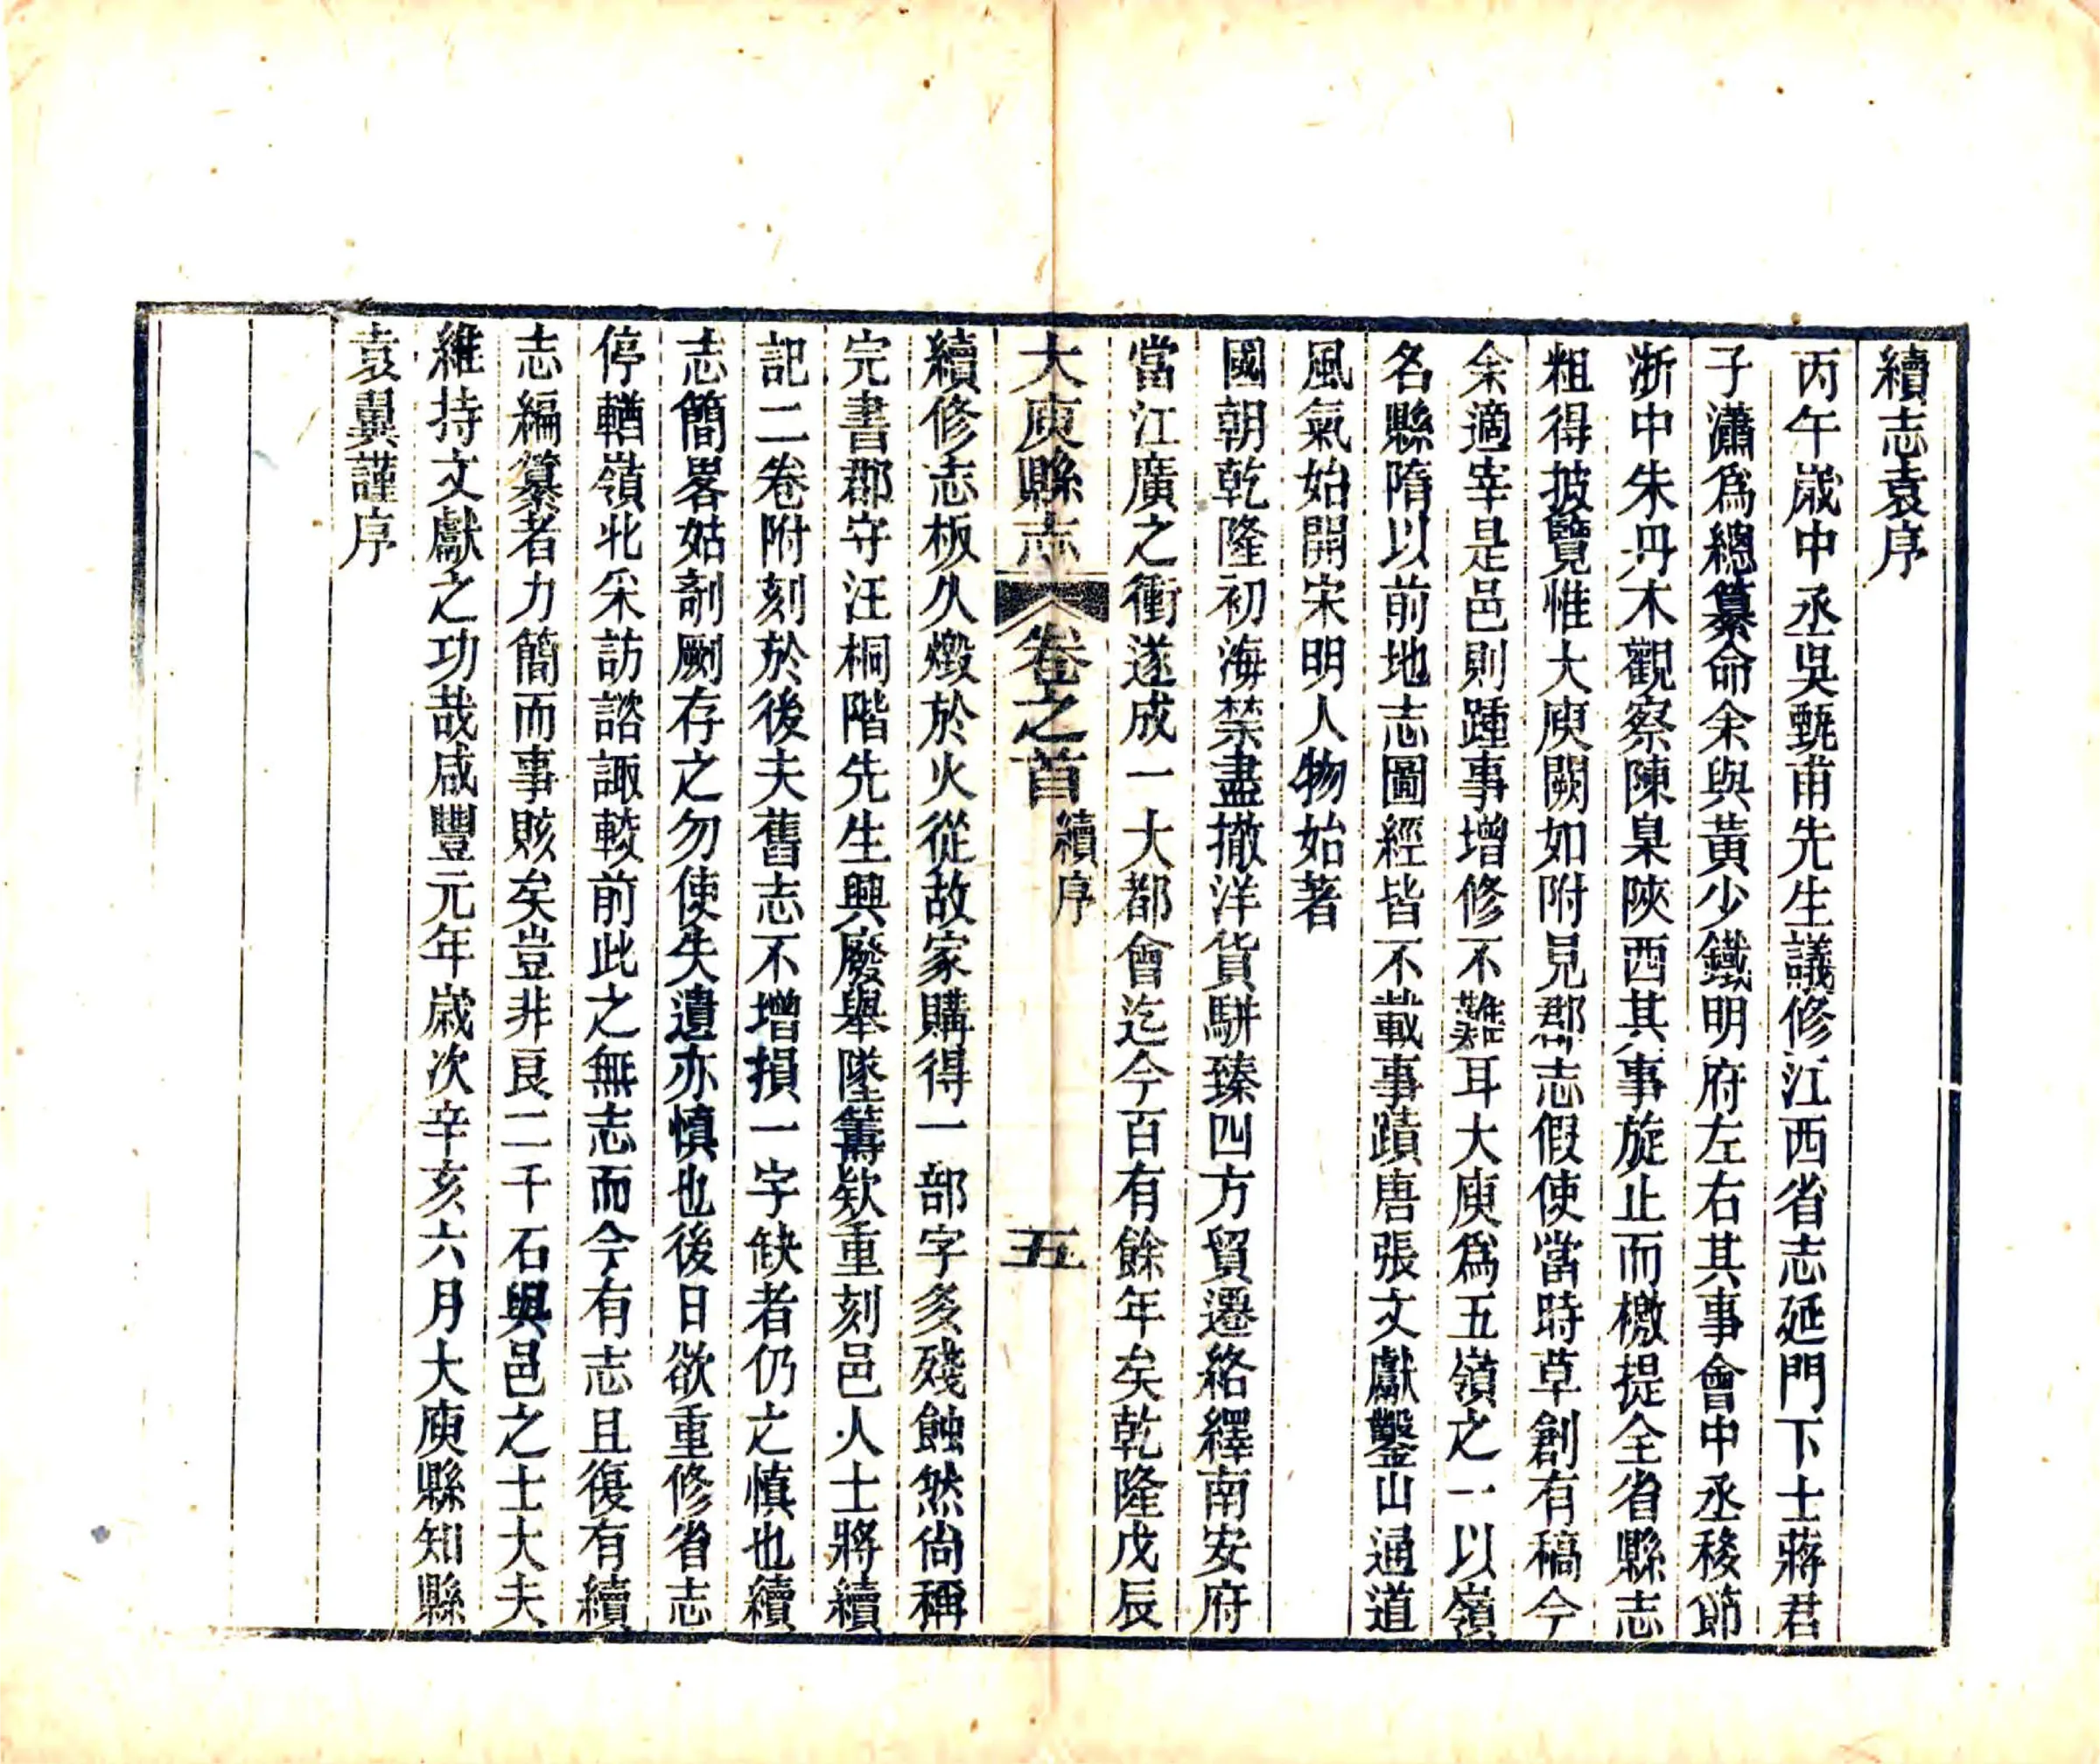 續志袁序
丙午歲中丞吳甄甫先生議修江西省志延門下士蔣君
子瀟爲總纂命余與黃少鐵明府左右其事會中丞移節
浙中朱丹木觀察陳臬陝西其事旋止而檄提全省縣志
粗得披覽惟大庾闕如附見郡志假使當時草創有稿今
余適宰是邑則踵事增修不難耳大庾爲五嶺之一以嶺
名縣隋以前地志圖經皆不載事蹟唐張文獻鑿山通道
風氣始開宋明人物始著
國朝乾隆初海禁盡撤洋貨駢臻四方貿遷絡繹南安府
當江廣之衝遂成一大都會迄今百有餘年矣乾隆戊辰
大庾縣志 卷之首 續序 五
續修志板久燬於火從故家購得一部字多殘蝕然尙稱
完書郡守汪桐階先生興廢舉墜籌欵重刻邑人士將續
記二卷附刻於後夫舊志不增損一字缺者仍之慎也續
志簡畧姑剞劂存之勿使失遺亦慎也後日欲重修省志
停輶嶺北采訪諮諏較前此之無志而今有志且復有續
志編纂者力簡而事賅矣豈非良二千石與邑之士大夫
維持文獻之功哉咸豐元年歲次辛亥六月大庾縣知縣
袁翼謹序